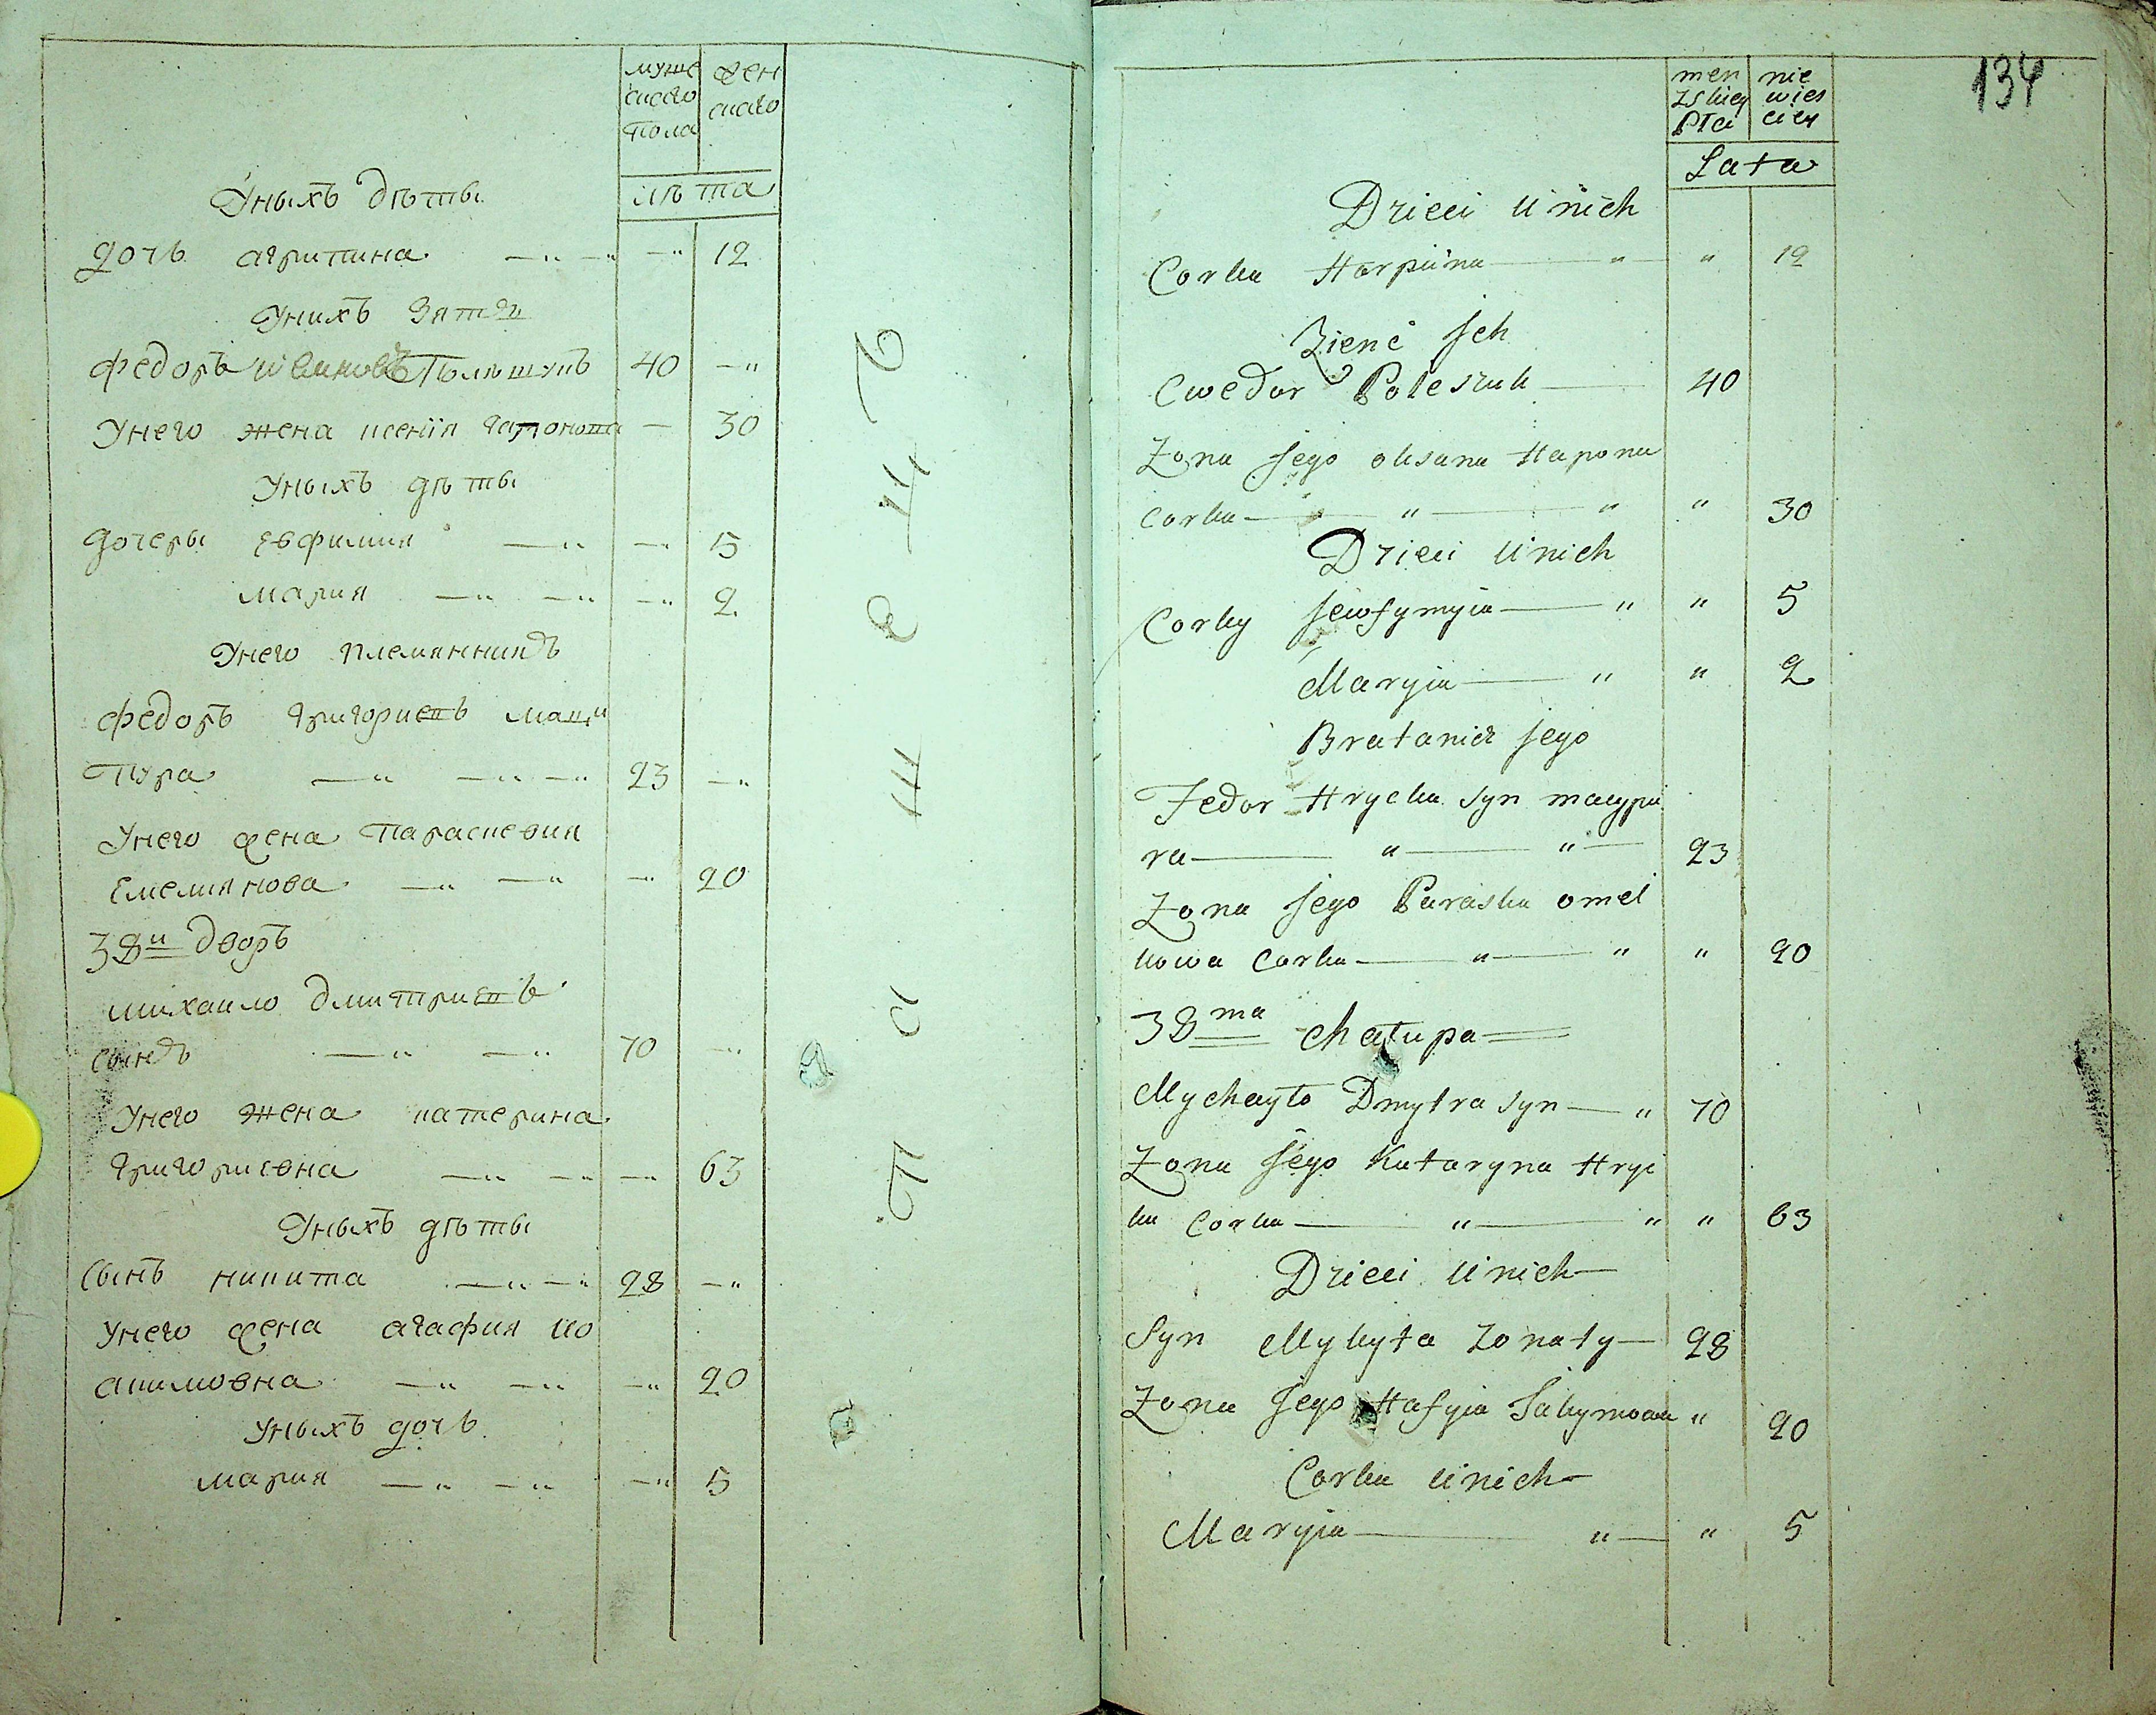 муже
ского
пола
жен
ского
лѣта
Уныхъ дѣты
дочь агрипина —„ —„ —„ 12
Унихъ Зять
федоръ ивановъ Полѣшукъ 40 —„
Унего жена ксенія гапонова — 30
Уныхъ дѣты
дочеры Евфимия —„ —„ 5
мария —„ —„ —„ 2
Унего племянникъ
федоръ григориевъ маци
пура —„ —„ —„ 23 —„
Унего жена Параскевия
Емелиянова —„ —„ —„ 20
38й дворъ
михаило дмитриевъ
сынъ —„ —„ 70 —„
Унего жена катерина
григориевна —„ —„ —„ 63
Уныхъ дѣты
Сынъ никита —„ —„ 28 —„
Унего жена агафия ио
акимовна —„ —„ —„ 20
Уныхъ дочь
мария —„ —„ —„ 5
134
men
zskiey
Płci
nie
wies
ciey
Lata
Dzieci u nich
Corka Harpiina — „ — „ 12
Zienć Jch
Cwedor Poleszuk — 40
Zona Jego oksana Hapona
Corka — „ — „ „ 30
Dzieci u nich
Corky Jewfymyia — „ „ 5
Maryia — „ „ 2
Bratanicz Jego
Fedor Hrycka Syn macypu
ra — „ — „ — 23
Zona Jego Paraska omel
kowa Corka — „ — „ „ 20
38ma Chałupa
Mychayło Dmytra Syn — „ 70
Zona Jego Kataryna Hryc
ka Corka — „ — „ „ 63
Dzieci u nich —
Syn Mykyta Zonaty — 28
Zona Jego Hafyia Jakymowa „ 20
Corka u nich —
Maryia — „ — „ 5